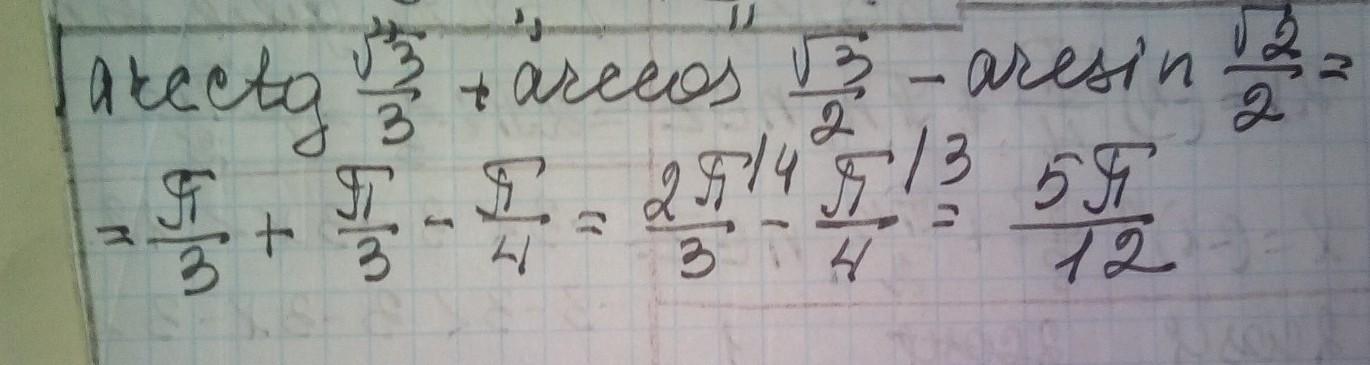 arcctg √3/3 + arccos √3/2 − arcsin √2/2 =
= π/3 + π/3 − π/4 = 2π/3 /4 − π/4 /3 = 5π/12